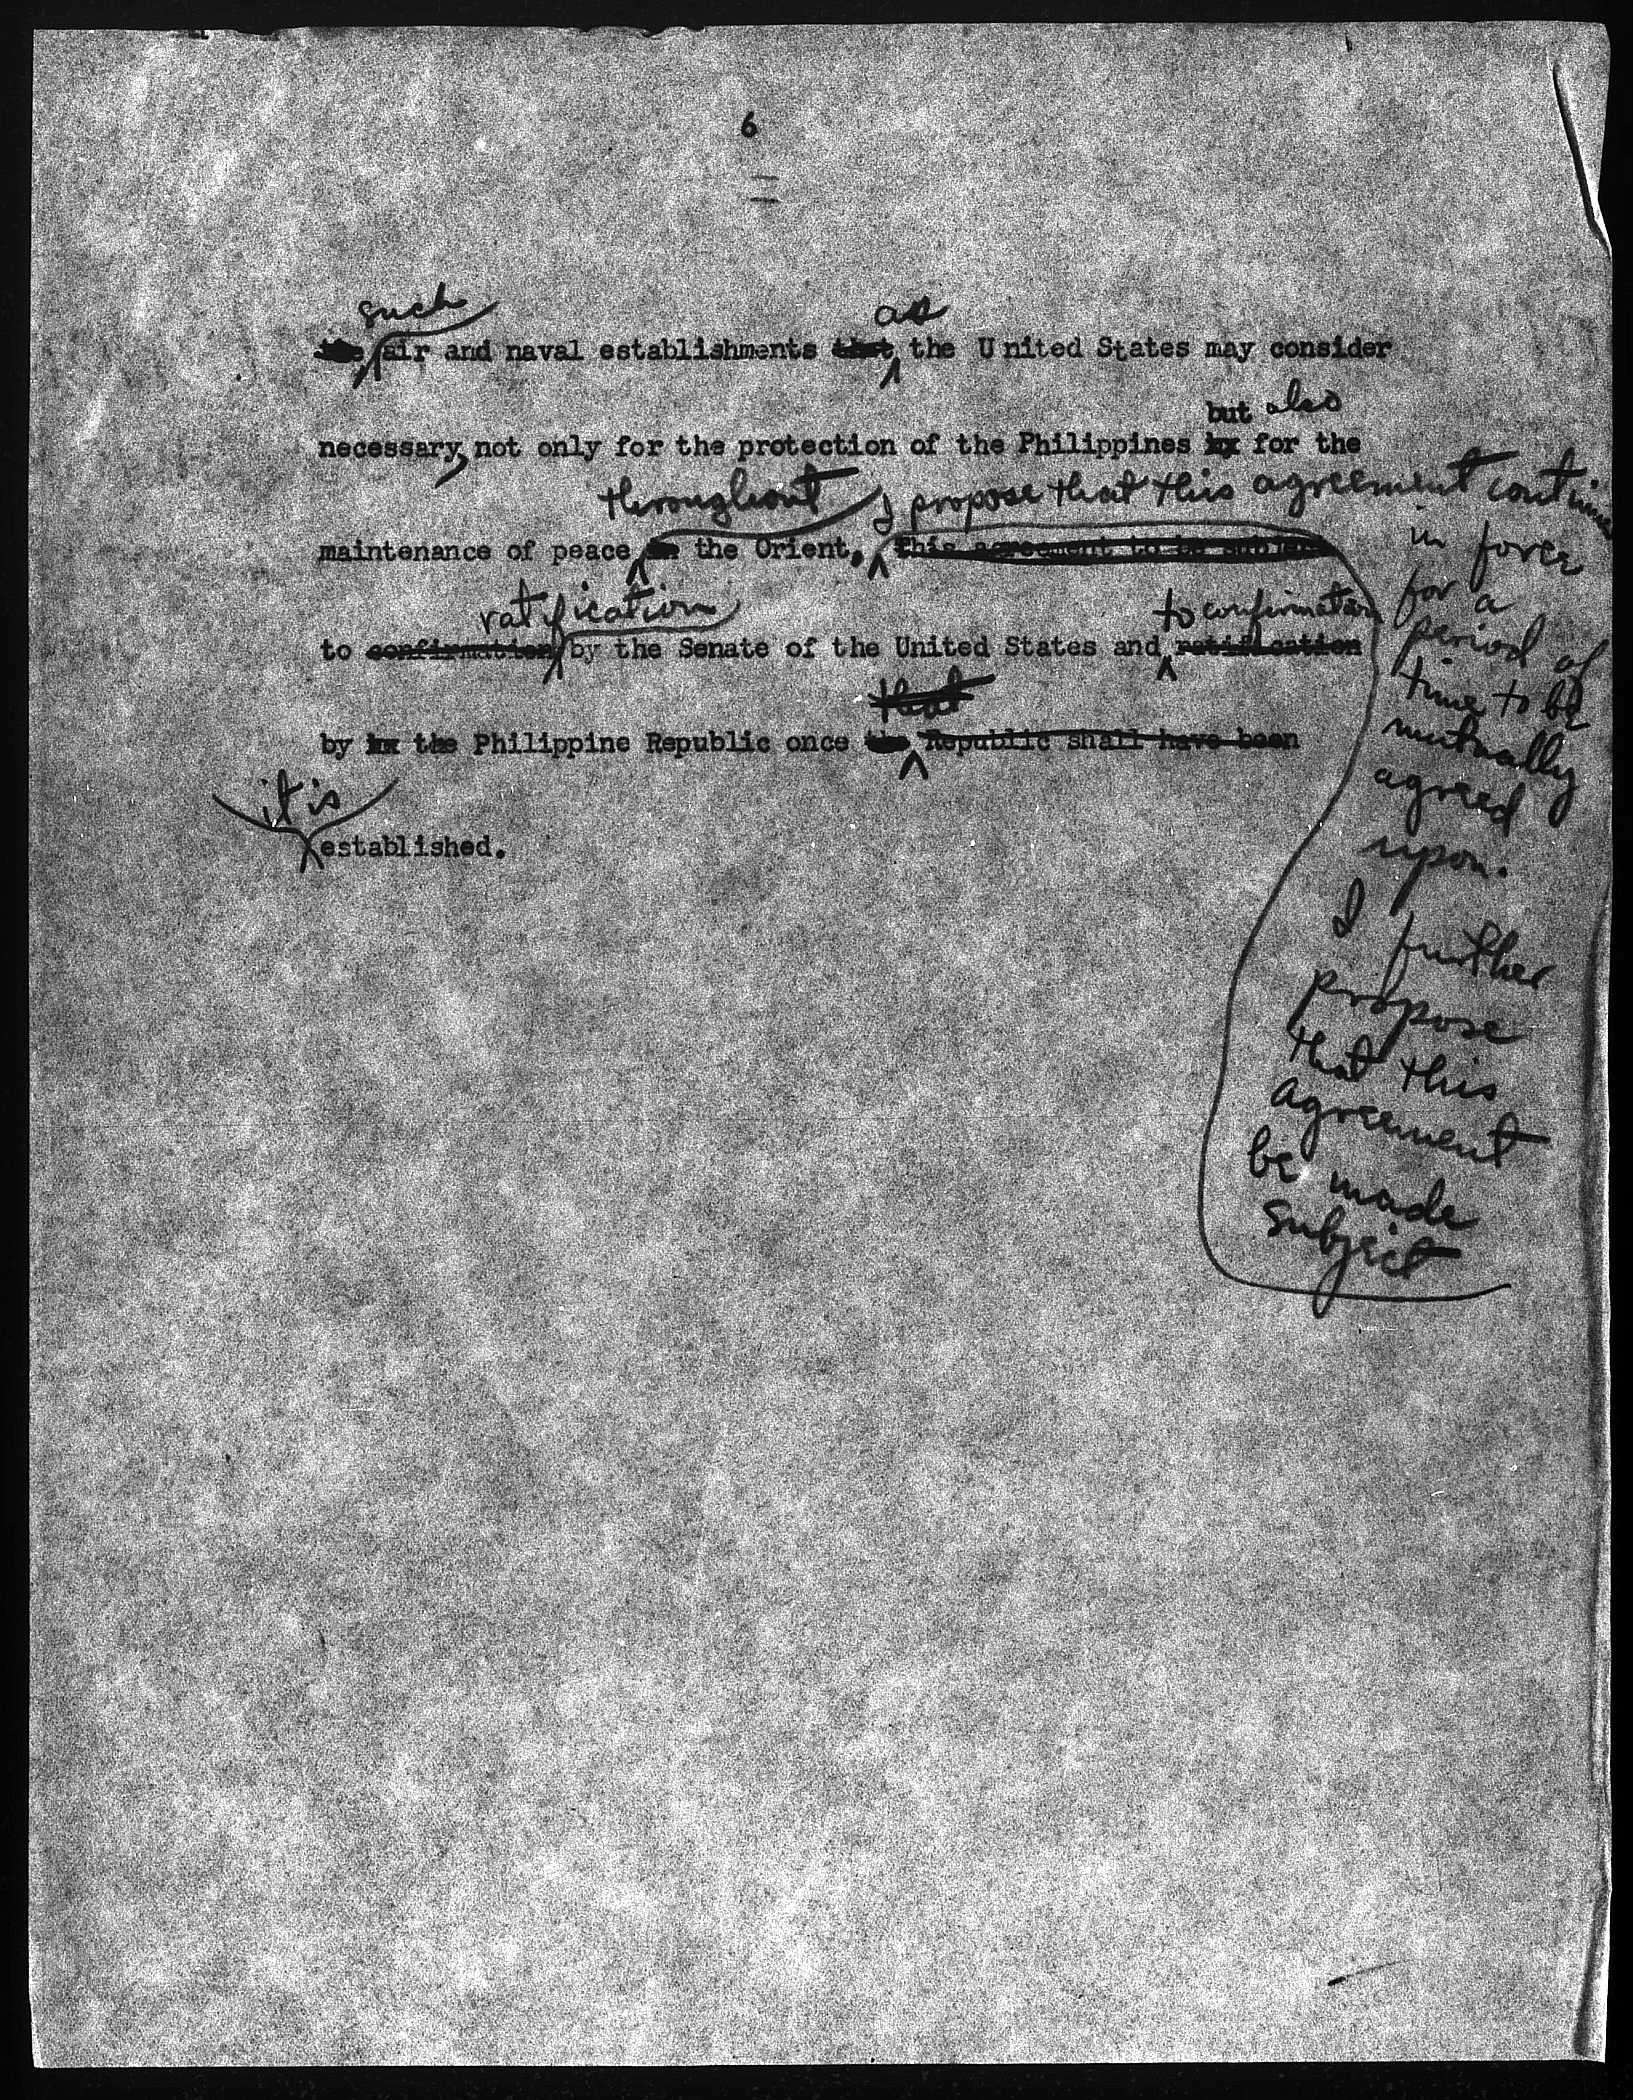 6
such as
the air and naval establishments that the United States may consider
but also
necessary, not only for the protection of the Philippines for the
throughout I propose that this agreement continue
maintenance of peace the Orient. this agreement to be subject
in force
for a
ratification to confirmation
period of
to confirmation by the Senate of the United States and ratification
time to be
that
mutually
by the Philippine Republic once the Republic shall have been
agreed
it is
upon.
established.
I further
propose
that this
agreement
be made
subject